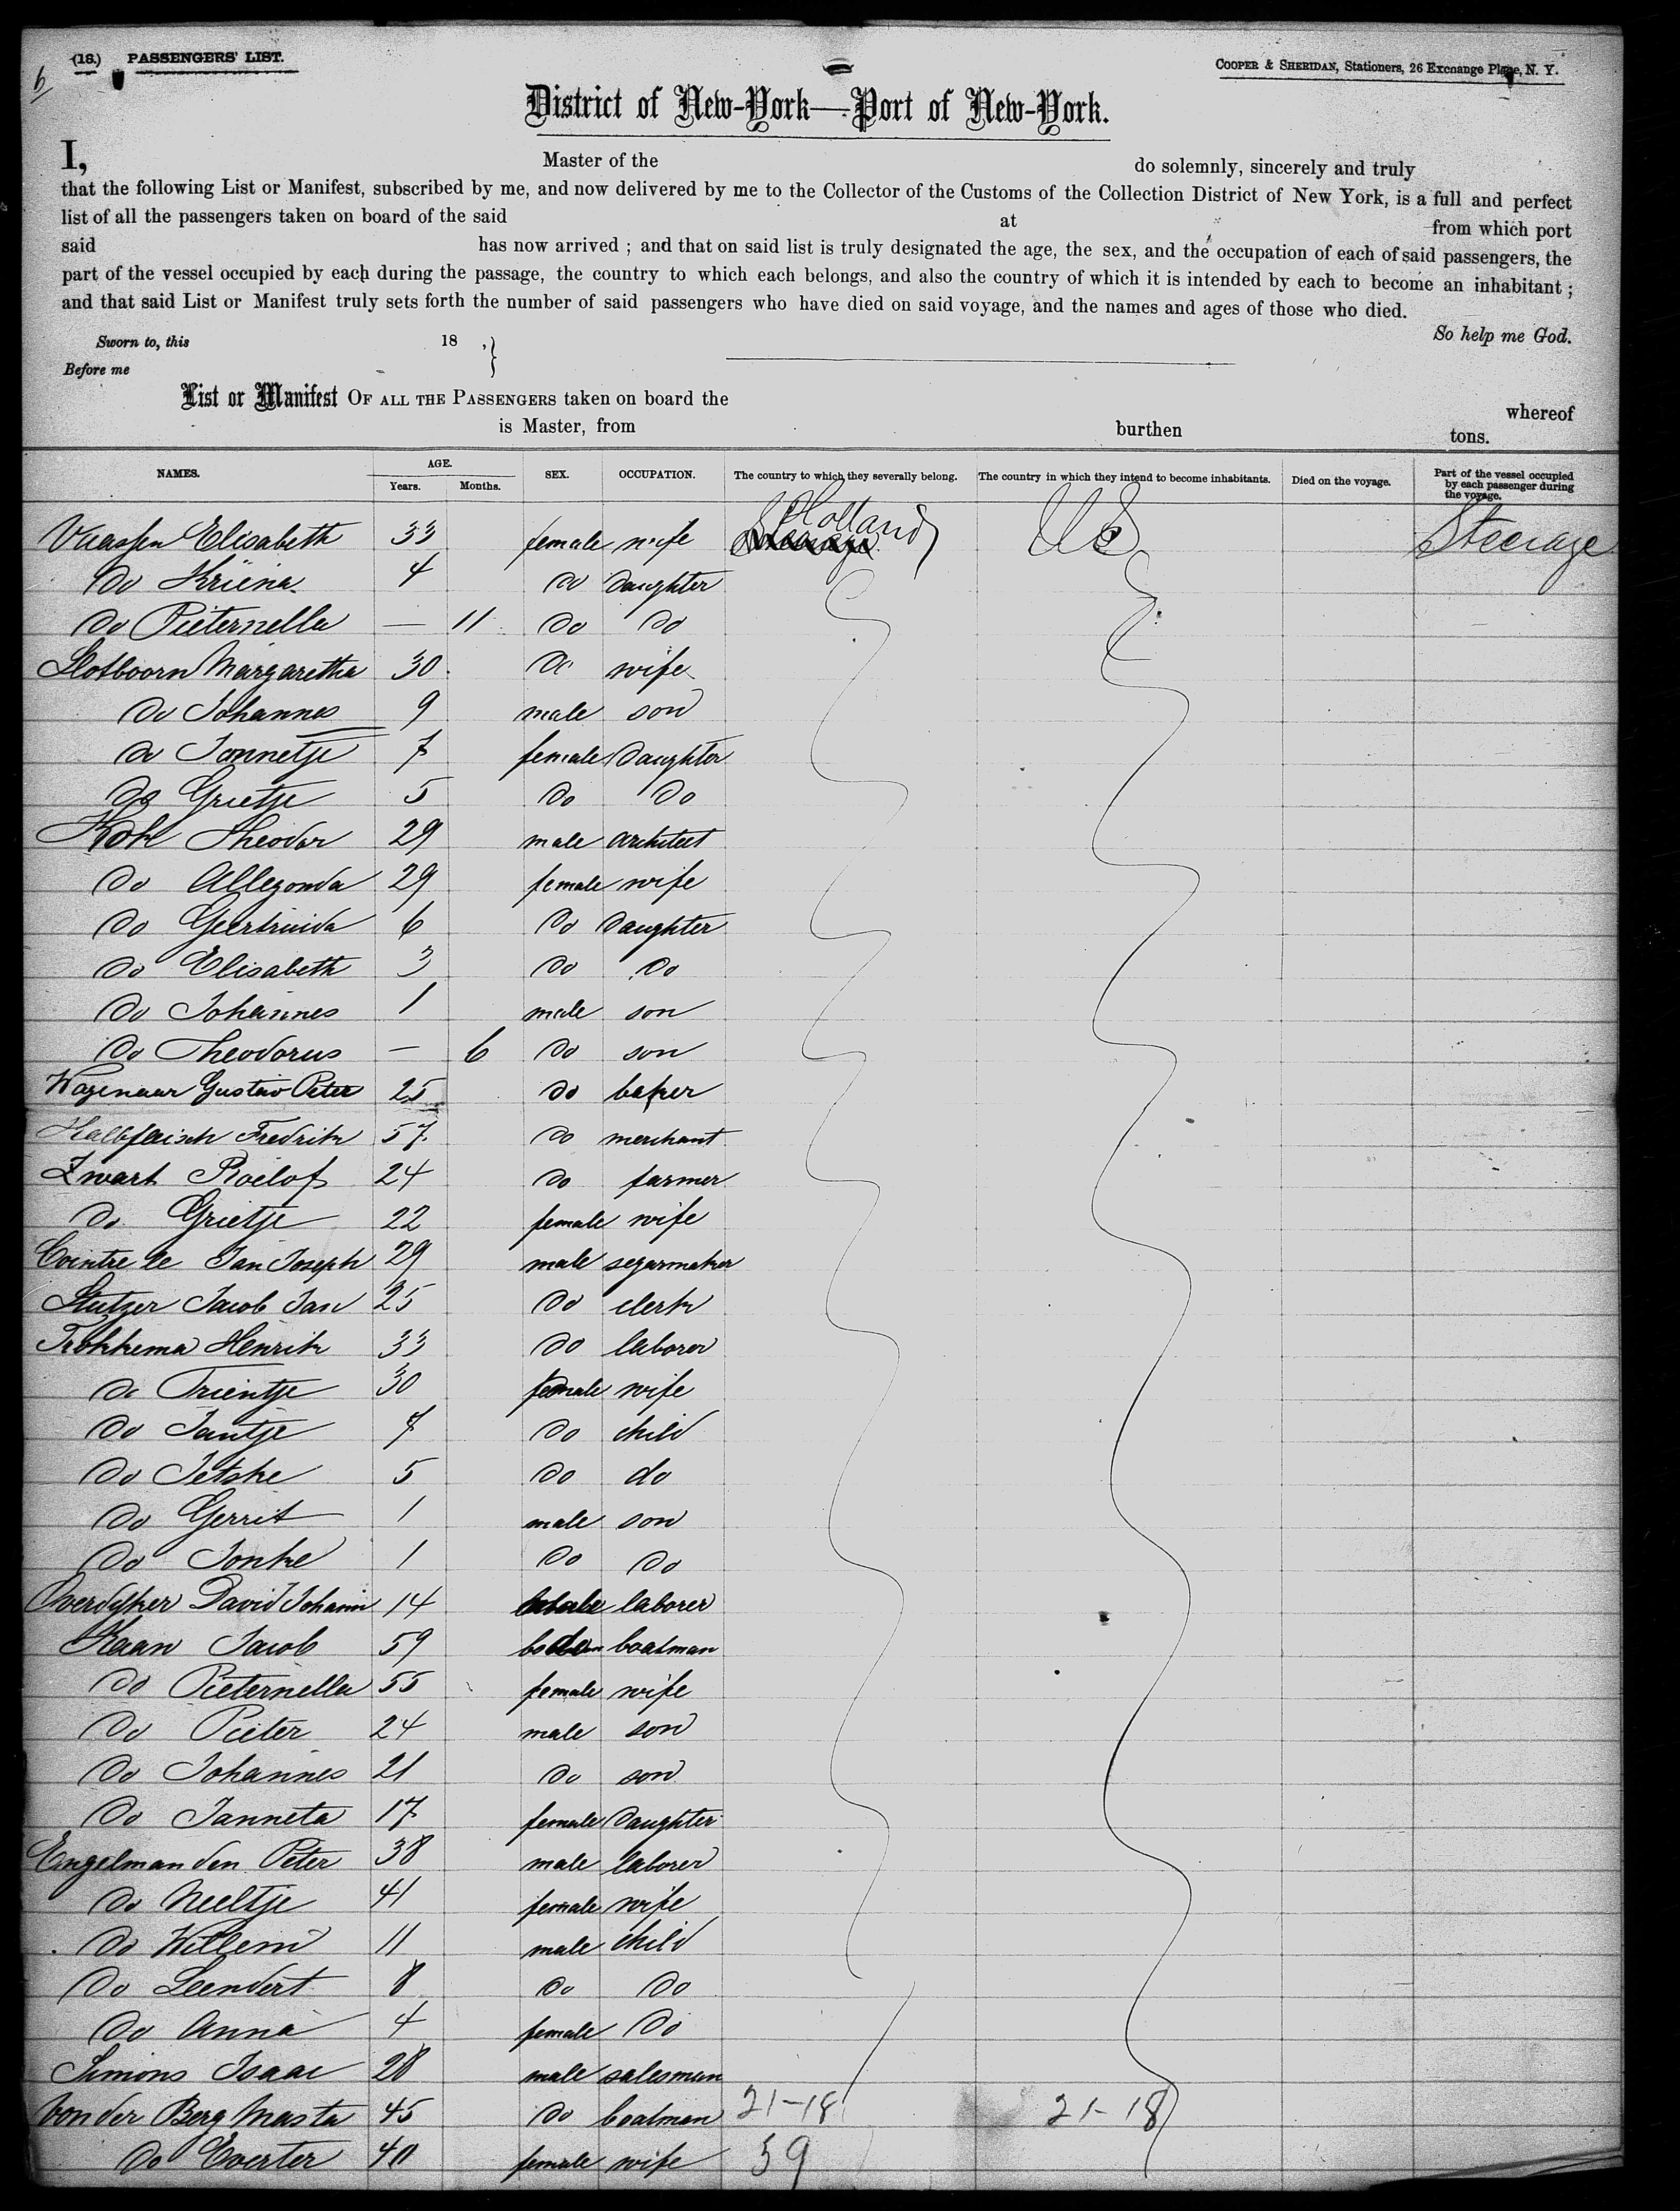 6
(18.) PASSENGERS' LIST.
COOPER & SHERIDAN, Stationers, 26 Exchange Place, N. Y.
District of New-York—Port of New-York.
I, Master of the do solemnly, sincerely and truly
that the following List or Manifest, subscribed by me, and now delivered by me to the Collector of the Customs of the Collection District of New York, is a full and perfect
list of all the passengers taken on board of the said at from which port
said has now arrived ; and that on said list is truly designated the age, the sex, and the occupation of each of said passengers, the
part of the vessel occupied by each during the passage, the country to which each belongs, and also the country of which it is intended by each to become an inhabitant ;
and that said List or Manifest truly sets forth the number of said passengers who have died on said voyage, and the names and ages of those who died.
So help me God.
Sworn to, this 18 ,}
Before me
List or Manifest OF ALL THE PASSENGERS taken on board the whereof
is Master, from burthen tons.
NAMES. AGE. Years. Months. SEX. OCCUPATION. The country to which they severally belong. The country in which they intend to become inhabitants. Died on the voyage. Part of the vessel occupied by each passenger during the voyage.
Vaassen Elisabeth 33 female wife Holland US Steerage
Do Kriena 4 Do Daughter
Do Pieternella — 11 Do Do
Slotboom Margaretha 30 Do wife
Do Johannes 9 male son
Do Jannetje 7 female Daughter
Do Grietje 5 Do Do
Kok Theodor 29 male architect
Do Allegonda 29 female wife
Do Geertruida 6 Do Daughter
Do Elisabeth 3 Do Do
Do Johannes 1 male son
Do Theodorus — 6 Do son
Wagenaar Gustav Peter 25 Do baker
Halbfleisch Fredrik 57 Do merchant
Zwart Roelof 24 Do farmer
Do Grietje 22 female wife
Cointre le Jan Joseph 29 male segarmaker
Stutzer Jacob Jan 25 Do clerk
Fokkema Henrik 33 Do laborer
Do Trientje 30 female wife
Do Jantje 7 Do child
Do Jetske 5 Do do
Do Gerrit 1 male son
Do Jonke 1 Do Do
Overdyker David Johann 14 laborer
Kaan Jacob 59 do boatman
Do Pieternella 55 female wife
Do Pieter 24 male son
Do Johannes 21 Do son
Do Janneta 17 female Daughter
Engelman den Peter 38 male laborer
Do Neeltje 41 female wife
Do Willem 11 male child
Do Leendert 8 Do Do
Do Anna 4 female Do
Simons Isaac 28 male salesman
Von der Berg Masta 45 Do boatman 21-18 21-18
Do Everter 40 female wife 39